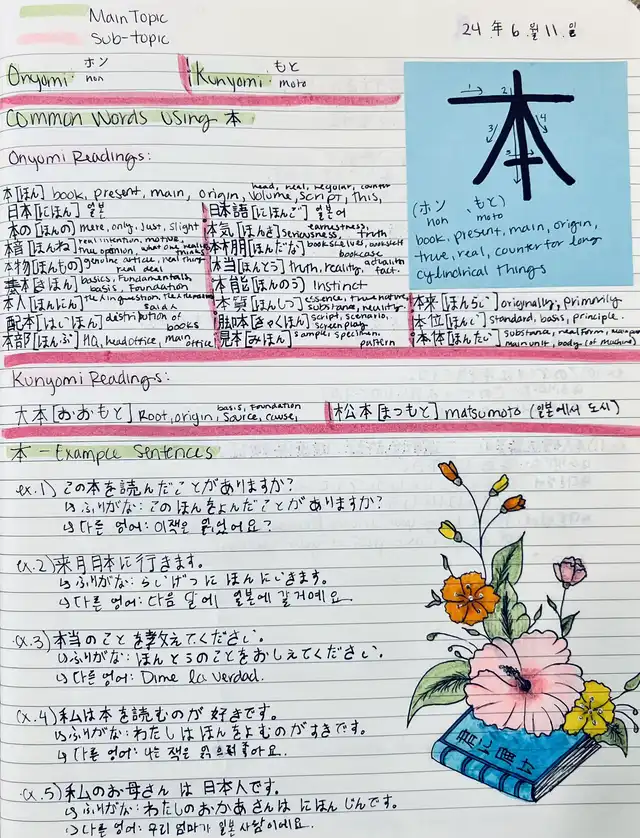 Main Topic
Sub-topic
24 年 6 월 11 일
Onyomi ホン non
Kunyomi もと moto
Common Words Using 本
Onyomi Readings:
本[ほん] book, present, main, origin, head, real, regular, counter volume, script, this,
日本[にほん] 일본
日本語[にほんご] 일본어
本の[ほんの] mere, only, just, slight
本気[ほんき] earnestness, seriousness, truth
本音[ほんね] real intention, motive, true opinion, what one really
本棚[ほんだな] bookshelves, bookshelf bookcase
本物[ほんもの] genuine article, real thing real deal
本当[ほんとう] truth, reality, actuality fact.
基本[きほん] basics, fundamentals, basis, foundation
本能[ほんのう] instinct
本人[ほんにん] the person said
本質[ほんしつ] essence, true nature, substance, reality
本来[ほんらい] originally, primarily
配本[はいほん] distribution of books
脚本[きゃくほん] script, scenario, screenplay
本位[ほんい] standard, basis, principle.
本部[ほんぶ] HQ, head office, main office
見本[みほん] sample, specimen, pattern
本体[ほんたい] substance, real form, main unit, body (of machine)
(ホン non 、もと) moto
book, present, main, origin,
true, real, counter for long
cylindrical things
Kunyomi Readings:
大本[おおもと] Root, origin, basis, foundation source, cause,
松本[まつもと] matsumoto (일본에서 도시)
本 - Example Sentences
ex.1) この本を読んだことがありますか?
↳ ふりがな: このほんをよんだことがありますか?
↳ 다른 영어: 이책은 읽었어요?
ex.2) 来月日本に行きます。
↳ ふりがな: らいげつにほんにいきます。
↳ 다른 영어: 다음 달에 일본에 갈거예요.
ex.3) 本当のことを教えてください。
↳ ふりがな: ほんとうのことをおしえてください。
↳ 다른 영어: Dime la verdad.
ex.4) 私は本を読むのが好きです。
↳ ふりがな: わたしはほんをよむのがすきです。
↳ 다른 영어: 나는 책은
ex.5) 私のお母さんは日本人です。
↳ ふりがな: わたしのおかあさんは にほんじんです。
↳ 다른 영어: 우리 엄마가 일본 사람이에요.
君に届け